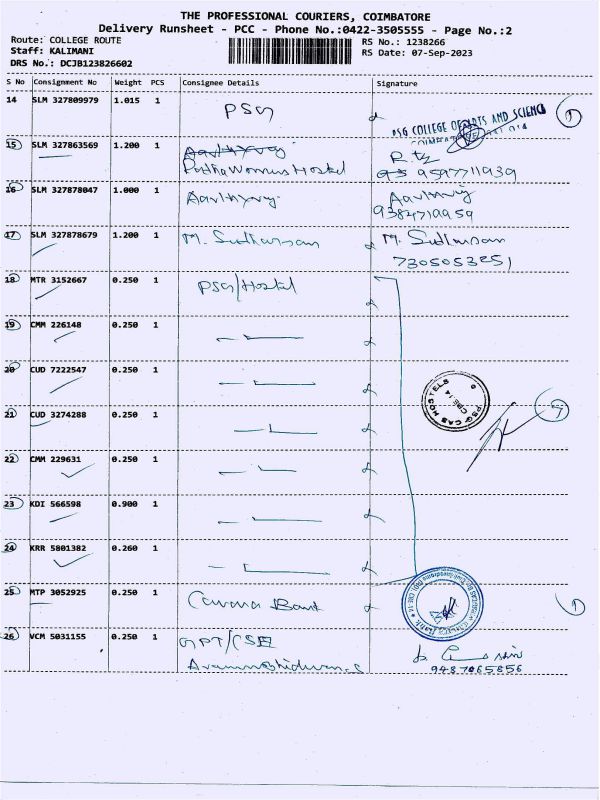 THE PROFESSIONAL COURIERS, COIMBATORE
Delivery Runsheet - PCC - Phone No.:0422-3505555 - Page No.:2
Route: COLLEGE ROUTE RS No.: 1238266
Staff: KALIMANI RS Date: 07-Sep-2023
DRS No.: DCJB123826602
S No Consignment No Weight PCS Consignee Details Signature
14 SLM 327809979 1.015 1 PSG PSG COLLEGE OF ARTS AND SCIENCE
15 SLM 327863569 1.200 1
Hostel 9597711939
16 SLM 327878047 1.000 1
9384719959
17 SLM 327878679 1.200 1 M. Sudharsan M. Sudharsan
7305053251
18 MTR 3152667 0.250 1 PSG/Hostel
19 CMM 226148 0.250 1
20 CUD 7222547 0.250 1
PSG CAS HOSTELS CBE 14
21 CUD 3274288 0.250 1
22 CMM 229631 0.250 1
23 KDI 566598 0.900 1
24 KRR 5801382 0.260 1
25 MTP 3052925 0.250 1 Canara Bank
26 VCM 5031155 0.250 1 GPT/CSE
9487065856